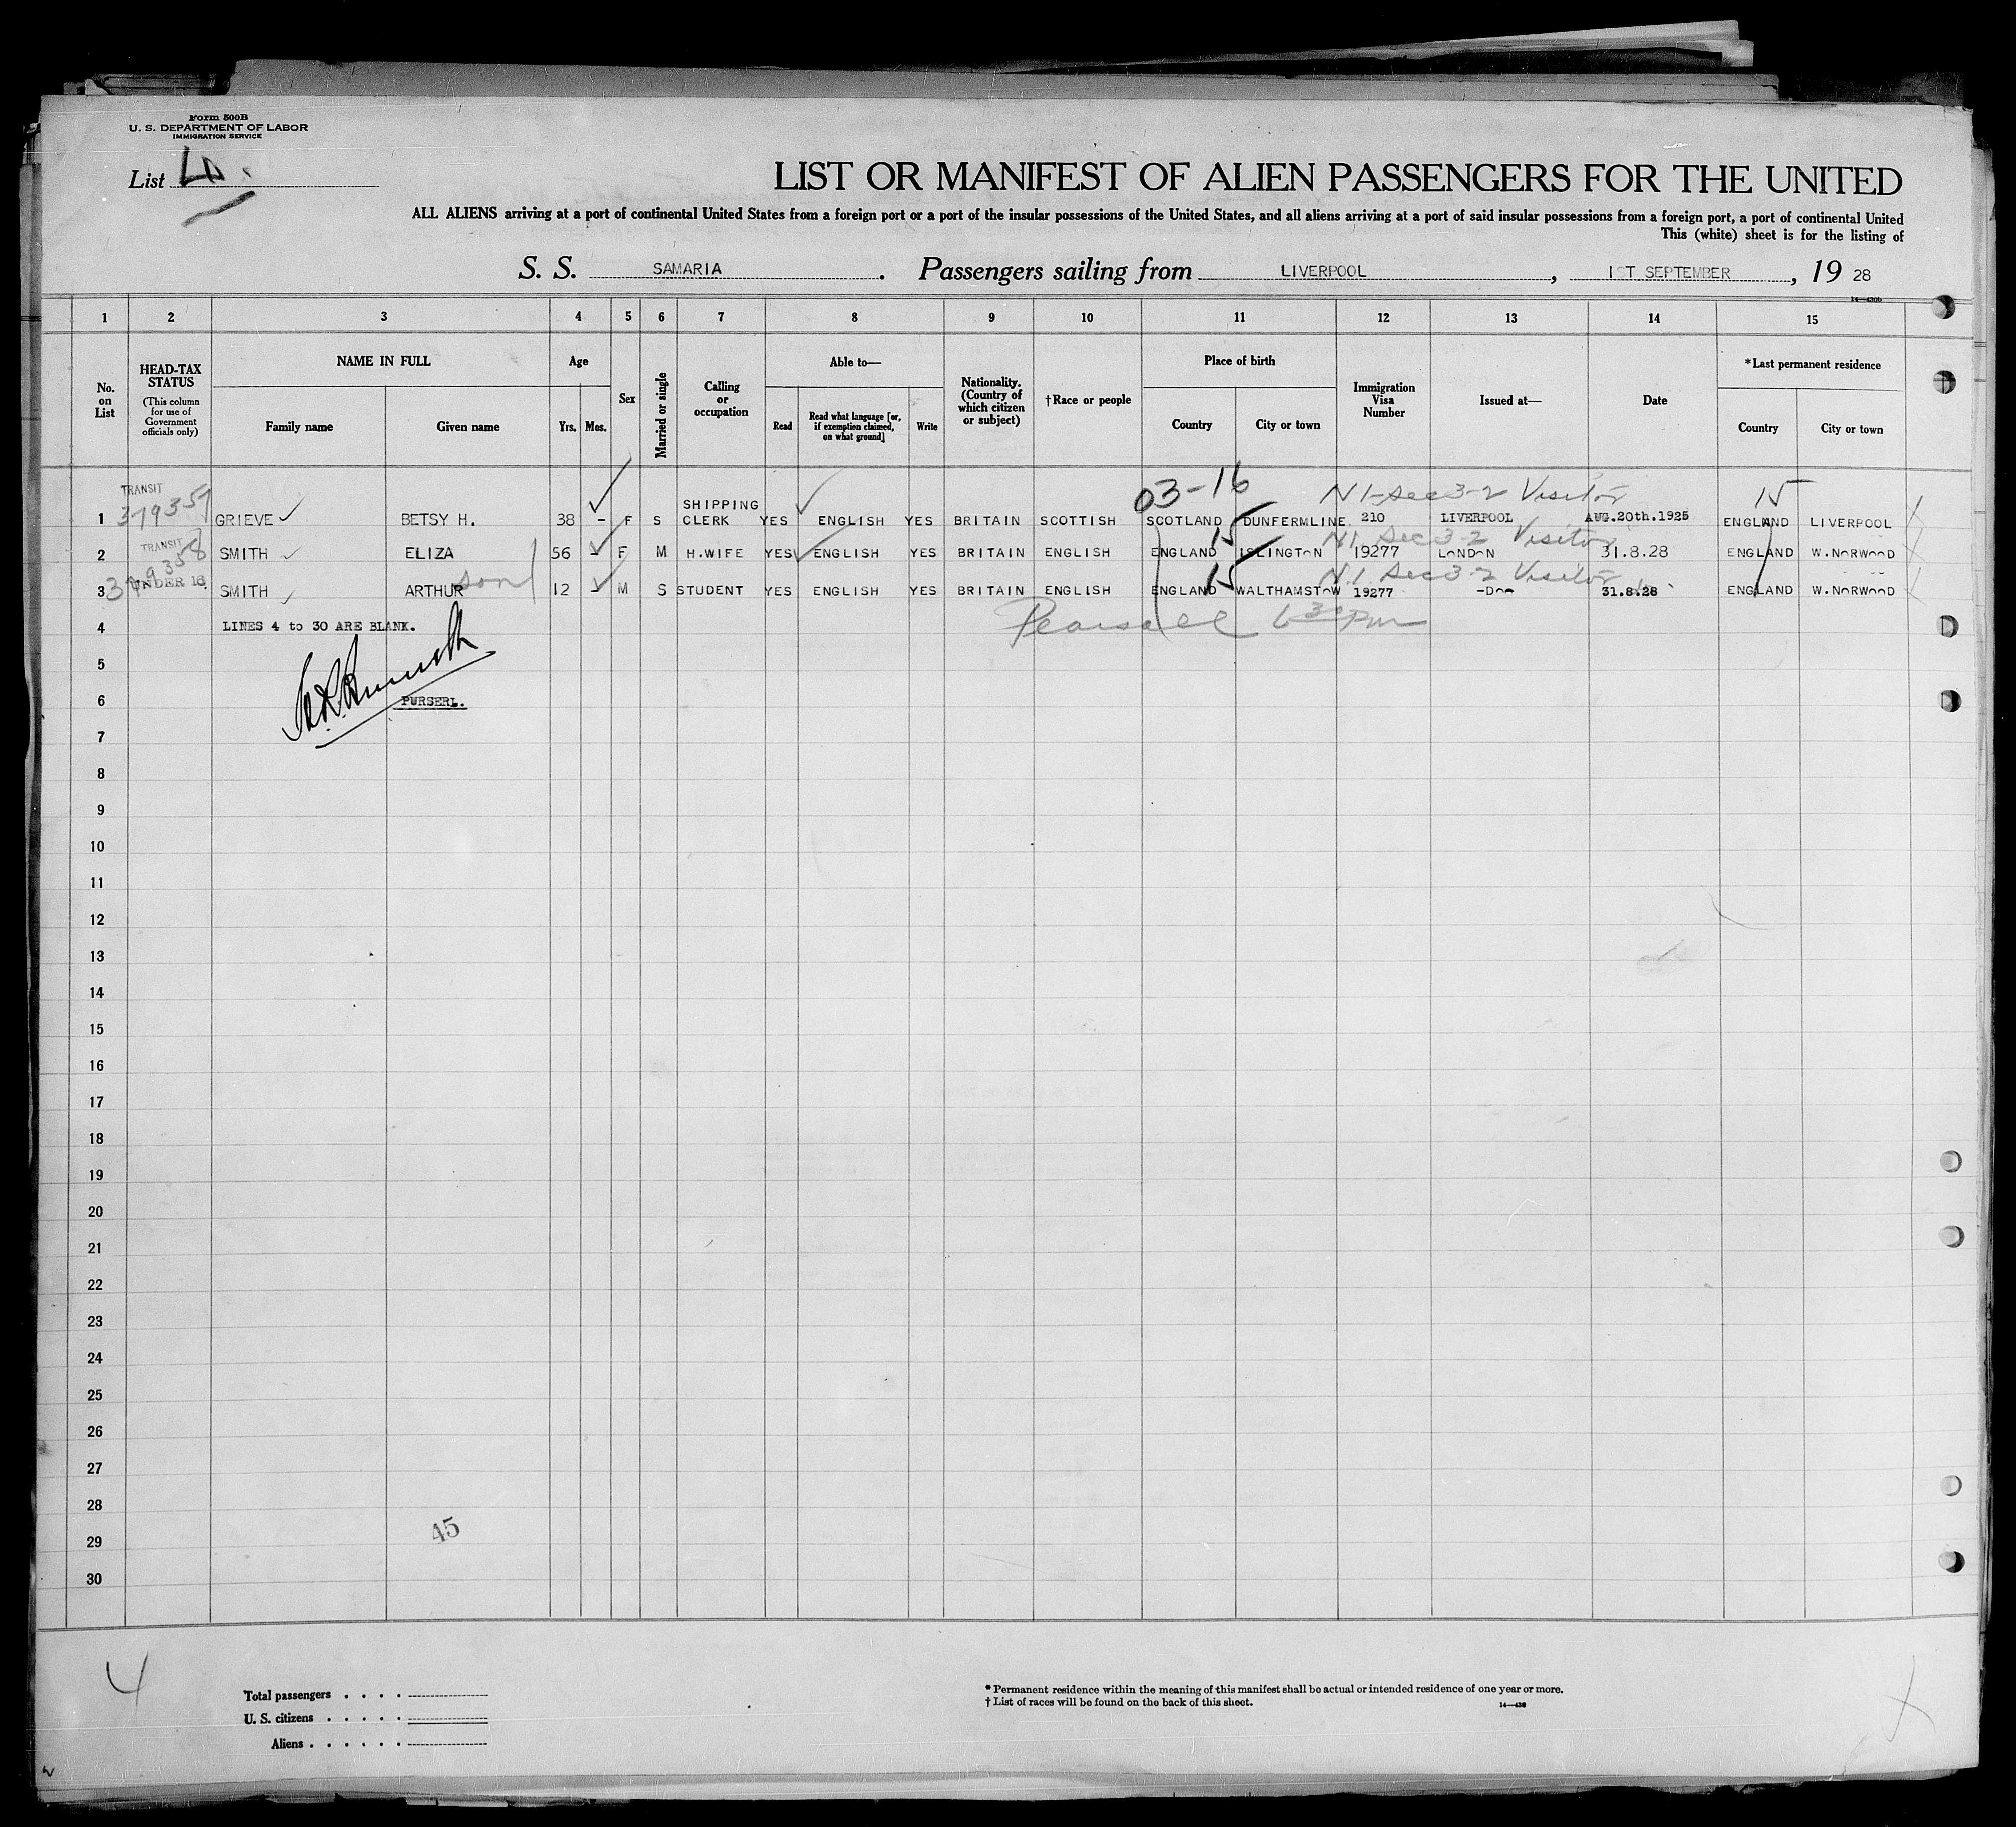 Form 500B
U. S. DEPARTMENT OF LABOR
IMMIGRATION SERVICE
List
LIST OR MANIFEST OF ALIEN PASSENGERS FOR THE UNITED
ALL ALIENS arriving at a port of continental United States from a foreign port or a port of the insular possessions of the United States, and all aliens arriving at a port of said insular possessions from a foreign port, a port of continental United
This (white) sheet is for the listing of
S. S. SAMARIA. Passengers sailing from LIVERPOOL, 1ST SEPTEMBER, 19 28
1 2 3 4 5 6 7 8 9 10 11 12 13 14 15
No. on List
HEAD-TAX STATUS
(This column for use of Government officials only)
NAME IN FULL
Family name Given name
Age
Yrs. Mos.
Sex
Married or single
Calling or occupation
Able to—
Read
Read what language [or, if exemption claimed, on what ground]
Write
Nationality. (Country of which citizen or subject)
†Race or people
Place of birth
Country City or town
Immigration Visa Number
Issued at—
Date
*Last permanent residence
Country City or town
03-16 N1-Sec 3-2 Visitor 15
TRANSIT
379357
1 GRIEVE BETSY H. 38 - F S SHIPPING CLERK YES ENGLISH YES BRITAIN SCOTTISH SCOTLAND DUNFERMLINE 210 LIVERPOOL AUG.20th.1925 ENGLAND LIVERPOOL
15 N1 Sec 3-2 Visitor
TRANSIT
379358
2 SMITH ELIZA 56 - F M H.WIFE YES ENGLISH YES BRITAIN ENGLISH ENGLAND ISLINGTON 19277 LONDON 31.8.28 ENGLAND W.NORWOOD
15 N1 Sec 3-2 Visitor
UNDER 16
3 SMITH ARTHUR son 12 - M S STUDENT YES ENGLISH YES BRITAIN ENGLISH ENGLAND WALTHAMSTOW 19277 -Do- 31.8.28 ENGLAND W.NORWOOD
4 LINES 4 to 30 ARE BLANK. Pearsall 6 30 Pm
5
6 PURSER.
7
8
9
10
11
12
13
14
15
16
17
18
19
20
21
22
23
24
25
26
27
28
45
29
30
4
Total passengers
U. S. citizens
Aliens
* Permanent residence within the meaning of this manifest shall be actual or intended residence of one year or more.
† List of races will be found on the back of this sheet.